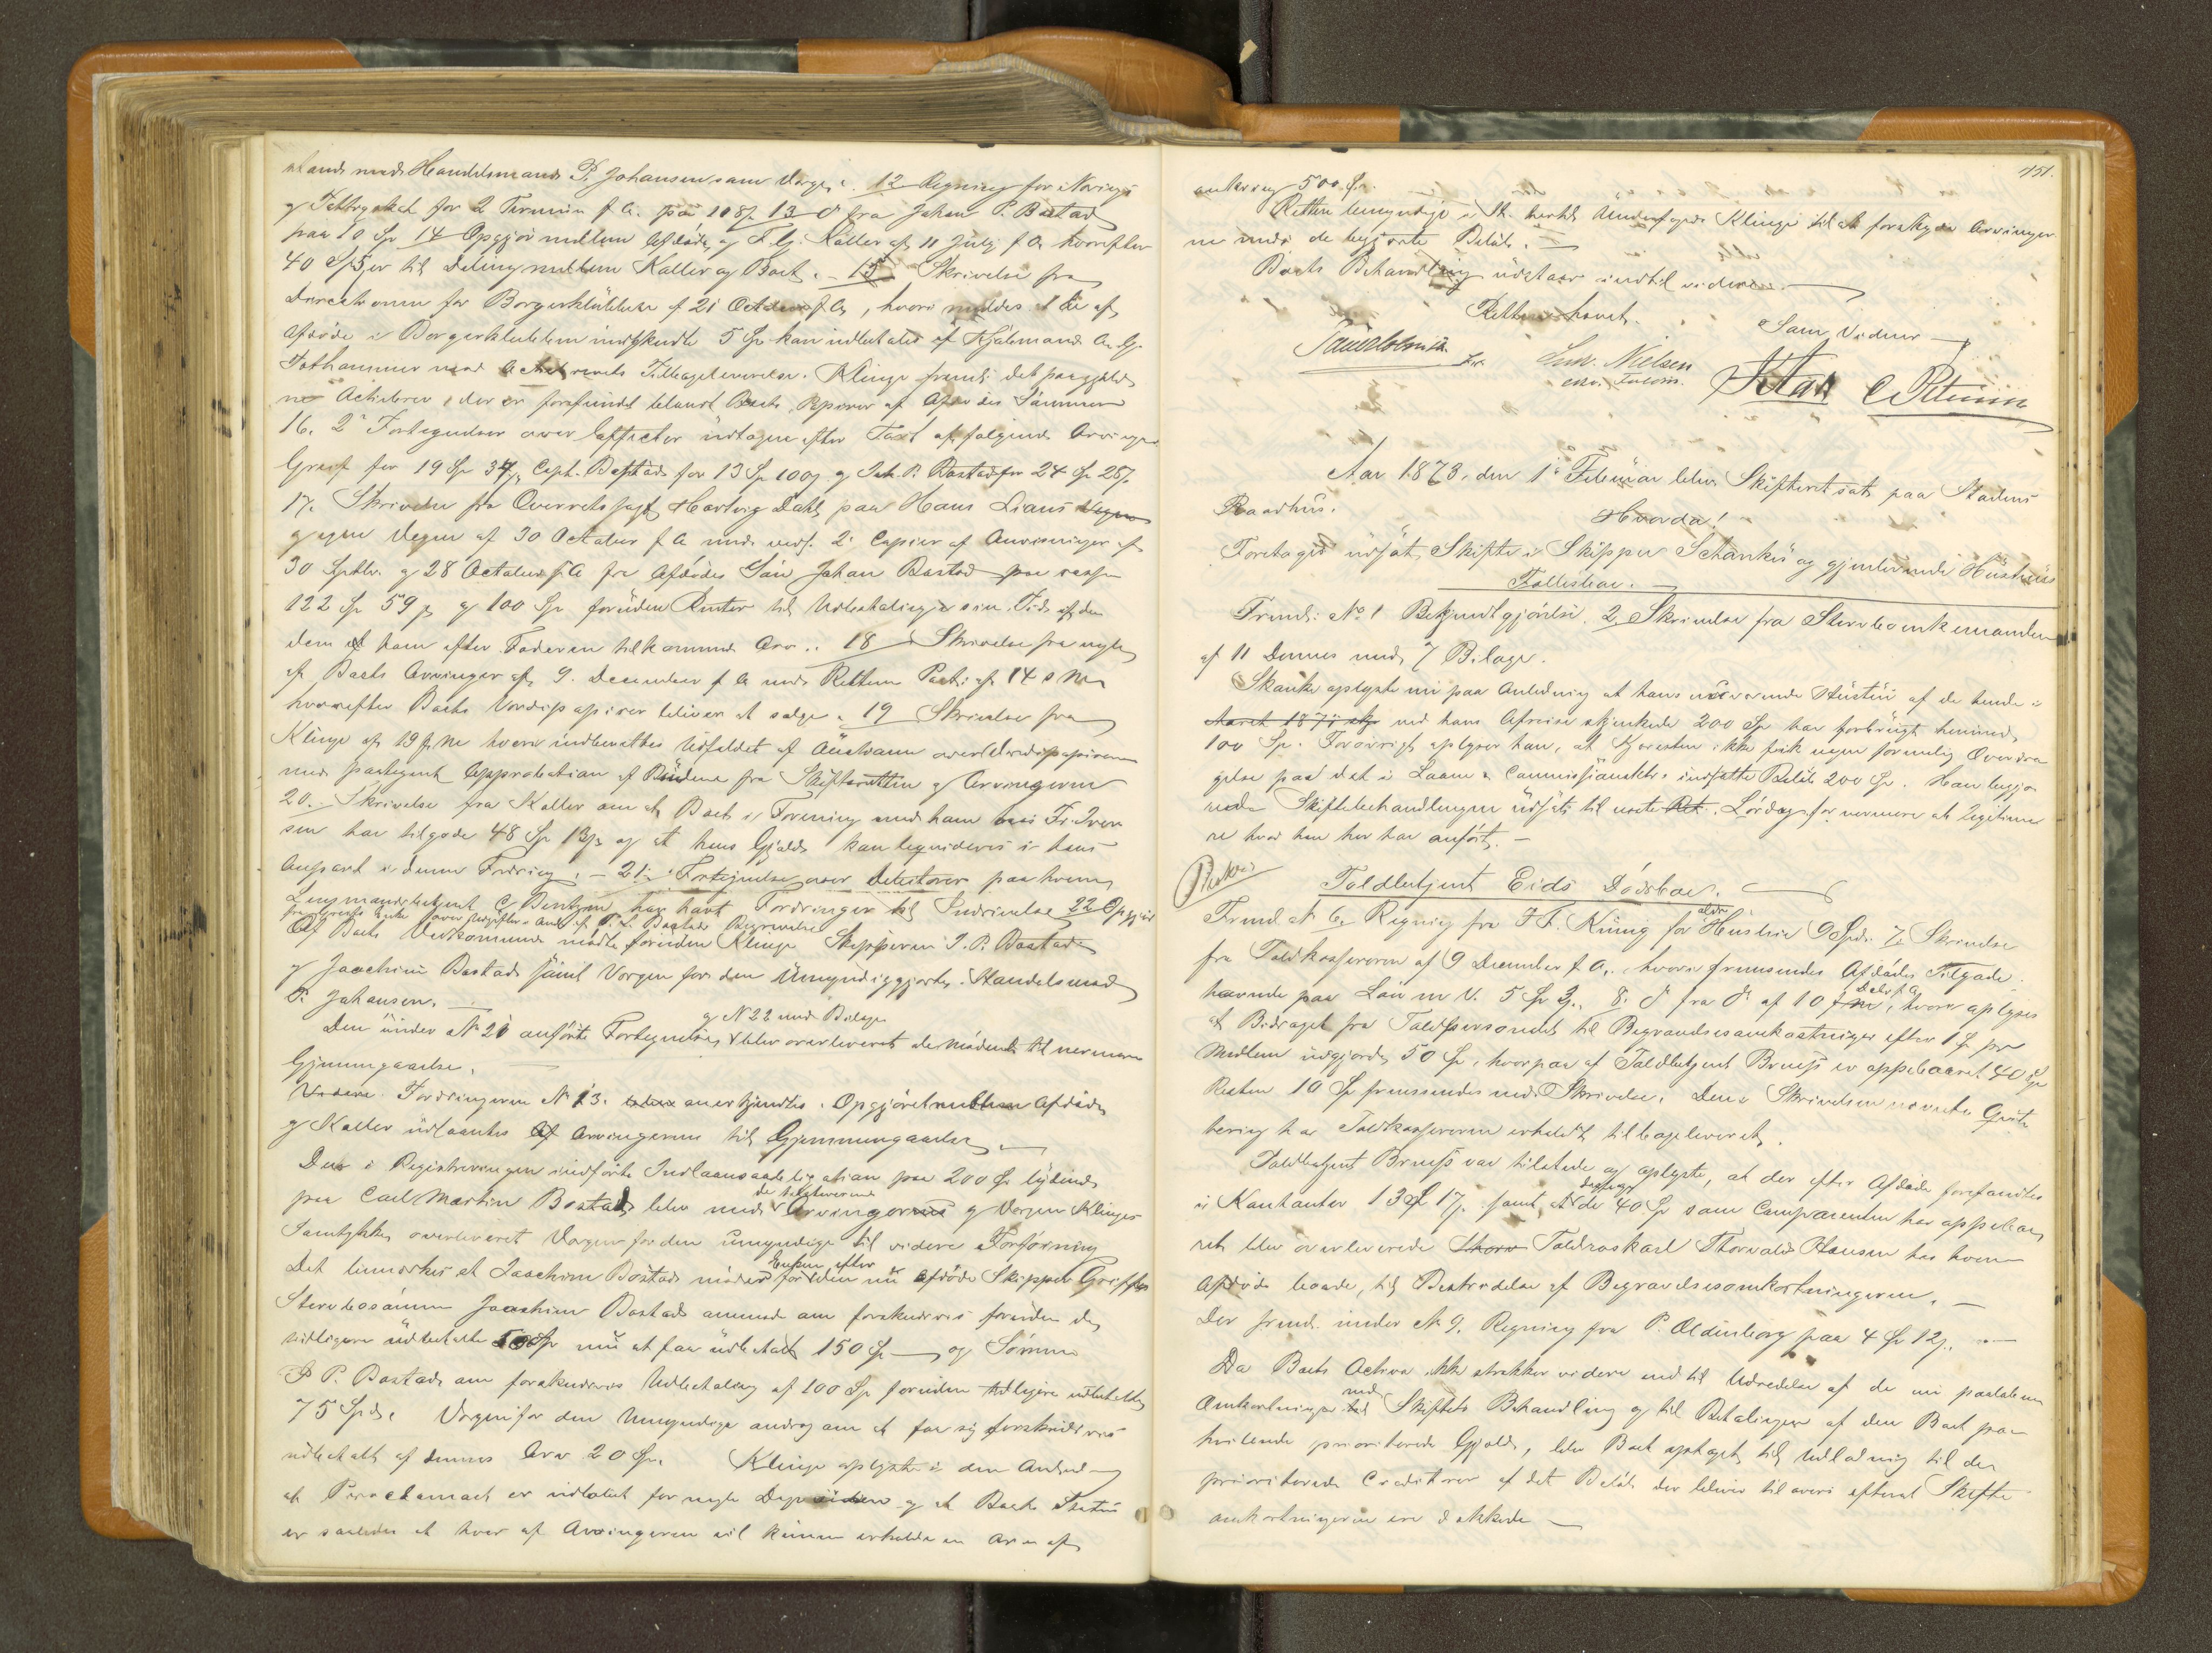 med Handelsmand P. Johansen som Værge. 12 Regning for Nærings
og Telttryckeh for 2 Termin f A. paa 108ſ 13 do fra Johan P. Bastad
paa 10 Sp 14 Opgjør mellem Afdøde og F. G. Kaller af 11 July f A hvorefter
40 Sp er til Deling mellem Kaller og Boet. 15 Skrivelse fra
Directionen for Borgerklubben af 21 October f A, hvori meldes at de af
Afdøde i Borgerklubben indskudte 5 Sp kan udbetales af
mod Actiebrevets Tilbagelevering. Klinge frem: det paagjæld
ne Actiebrev, der er forefundet blandt Boets Papirer af Afdødes Sønner
16. 2de Fortegnelser over Effecter udtagne efter Taxt af følgende Arvinger
Greiff for 19 Sp 34ſ, Capt. Bastad for 13 Sp 100ſ og Joh. P. Bastad for 24 Sp 28ſ.
17. Skrivelse fra Overretssagf Hartvig Dahl paa Hans Lians
og egne Vegne af 30 October f A med vedf. 2 Copier af Anvisninger af
30 Septbr. og 28 October f A fra Afdødes Søn Johan Bastad paa resp
122 Sp 59 ſ og 100 Sp foruden Renter til Udbetaling i sin Tid af den
dem af ham efter Faderen tilkommende Arv. 18 Skrivelse fra nogle
af Boets Arvinger af 9. December f A med Rettens Paat: af 14 s M
hvorefter Boets Værdipapirer bliver at sælge. 19 Skrivelse fra
Klinge af 19 f M hvori indberettes Udfaldet af Auctionen over Værdipapirerne
med paategnet Approbation af Budene fra Skifteretten og Arvingerne
20. Skrivelse fra Kaller om at Boet i Forening med ham hos Fr. Iver
sen har tilgode 48 Sp 13ſ og at hans Gjæld kan liqvideres i hans
Anpart i denne Fordring. – 21. Fortegnelse over Debitorer paa hvem
Lensmandsbetjent C. Bentzen har havt Fordringer til Inddrivelse 22 Opgjør
fra Greiffs Enke over Udgifter i Anl af P. L. Bastads Begravelse
Af Boets Vedkommende mødte foruden Klinge Skipperen J. P. Bastad
og Joachim Bastad samt Værgen for den Umyndiggjorte Handelsmand
P. Johansen.
og N 22 med Bilage
Den under No 21 anførte Fortegnelse blev overleveret de Mødende til nærmere
Gjennemgaaelse.
Fordringerne No 13. anerkjendtes. Opgjøret mellem Afdøde
og Kaller udlaantes Arvingerne til Gjennemgaaelse.
Den i Registreringen indførte Indlaansobligation paa 200 Sp lydende
de tilstedeværende
paa Carl Martin Bastad blev med Arvingernes og Værgen Klinges
Samtykke overleveret Værgen for den Umyndige til videre Forføining
Enken efter
Det bemærkes at Joachim Bastad møder for den nu afdøde Skipper Greiffs
Stervbosønnen Joachim Bastad anmodede om forskudsvis foruden de
tidligere udbetalte 50 Sp nu at faa udbetalt 150 Sp og Sønnen
J. P. Bastad om forskudsvis Udbetaling af 100 Sp foruden tidligere udbetalte
75 Spd. Værgen for den Umyndige androg om at faa sig forskudsvis
udbetalt af dennes Arv 20 Sp. Klinge oplyste i den Anledning
at Proclamaet er udløbet for nogle Dage siden og at Boets Status
er saaledes at hver af Arvingerne vil kunne erholde en Arv af
151.
omkring 500 Sp.
Retten bemyndige i St. hertil Underfoged Klinge til at forskyde Arvinger
ne med de begjærte Beløb.
Boets Behandling udstaar indtil videre.
Retten hævet.
Som Vidner
Lud. Nielsen
C Petersen
Aar 1873, den 1ste Februar blev Skifteret sat paa Stadens
Raadhus.
Hvorda!
Foretaget udsat Skifte i Skipper Schankes og gjenlevende Hustrues
Fællesbo.
Fremls. No 1 Bekjendtgjørelse. 2, Skrivelse fra Stervboenkemanden
af 11 Dennes med 7 Bilage.
Skanke oplyste nu paa Anledning at hans nuværende Hustru af de hende i
Aaret 1871 ved hans Afreise skjenkede 200 Sp har forbrugt henimod
100 Sp. Forøvrigt oplyser han, at Kjøresten ikke fik nogen formelig Overdra
gelse paa det i Laane & Commissionsktr. indsatte Beløb 200 Sp. Han begjæ
rede Skiftebehandlingen udsat til næste Lørdag for nærmere at legitime
re hvad han her har anført.
Toldbetjent Eids Dødsboe.
Fremls No 6. Regning fra F. F. König for Huusleie 9 Spd. 7. Skrivelse
fra Toldkassereren af 9 December f. A., hvori fremsendes Afdødes Tilgode
havende paa Løn m V. 5 Sp 3ſ. 8. do fra do af 10 Decbr f A, hvori oplyses
at Bidraget fra Toldpersonalet til Begravelsesomkostninger efter 1 Sp pr
Medlem udgjorde 50 Sp, hvorpaa af Toldbetjent Bruess er oppebaaret 40 Sp
Resten 10 Sp fremsendes med Skrivelse. Den i Skrivelsen nævnte Qvit
tering har Toldkassereren erholdt tilbageleveret.
Toldbetjent Bruess var tilstede og oplyste, at der efter Afdøde forefandtes
i Kontanter 13 Sp 17ſ. samt at de 40 Sp som Comparenten har oppebaa
ret blev overleverede Toldroskarl Thorvald Hansen hos hvem
Afdøde boede, til Bestridelse af Begravelsesomkostningerne.
Der fremls. under No 9. Regning fra P. Oldenborg paa 4 Sp 12ſ.
Da Boets Activa ikke strækker videre end til Udredelse af de nu paaløbne
Omkostninger med Skiftets Behandling og til Betalingen af den Boet paa
hvilende prioriterede Gjæld, blev Boet optaget til Udlodning til de
prioriterede Creditorer af det Beløb der bliver tilovers efterat Skifte
omkostningerne ere dækkede